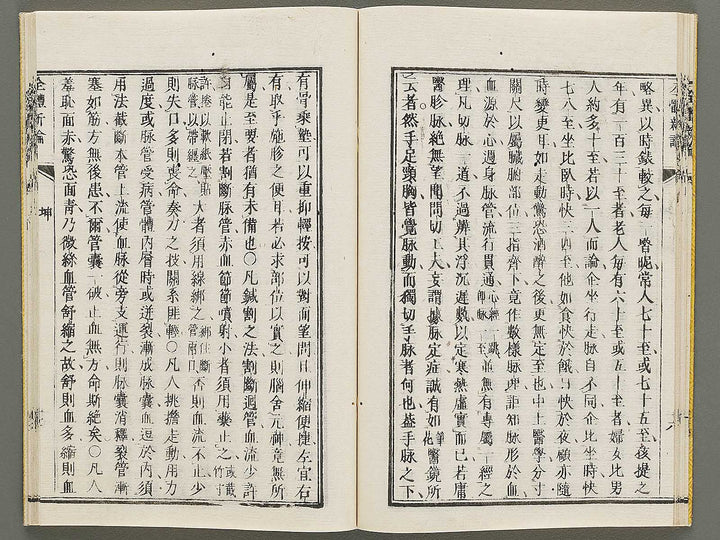 略異以時錶較之每一瞀呢常人七十至或七十五至孩提之
年有一百三十至者老人每有六十至或五十至者婦女比男
人約多十至若以一人而論企坐行走脉自不同企比坐時快
七八至坐比臥時快三四至他如食快於餓日快於夜顧亦隨
時變更耳如走動驚恐酒醉之後更無定至也中土醫學分寸
關尺以屬臟腑部位三指齊下竟作數樣脉理詎知脉形於血
血源於心過身脉管流行貫通心經一跳即脉一至並無有專屬一經之
理凡切脉一道不過辨其浮沉遲數以定寒熱虛實而已若庸
醫診脉絶無望聞問切工夫妄謂據脉定症誠有如華佗醫鏡所
云者然手足頸胸皆覺脉動而獨切手脉者何也蓋手脉之下
有骨乘墊可以重抑輕按可以對面望問且伸縮便捷左宜右
有取乎施診之便耳若必求部位以實之則腦舍元神竟無所
屬是至要者猶有未備也〇凡鍼割之法割斷迴管血流少許
自能止閉若割斷脉管赤血節節噴射小者須用囊止之或截竹寸
許捲以軟紙壓貼脉管以帶纏之大者須用線綁之綁住斷管兩口否則血流不止少
則失口多則喪命奏刀之技關系匪輕〇凡人挑擔走動用力
過度或脉管受病管體內層時或迸裂漸成脉囊血逗於內須
用法截斷本管上流使血脉從旁支運行則脉囊消釋裂管漸
塞如筋方無後患不爾管囊一破止血無方命斯絶矣〇凡人
羞恥面赤驚恐面青乃微絲血管舒縮之故舒則血多縮則血
全體新論
坤